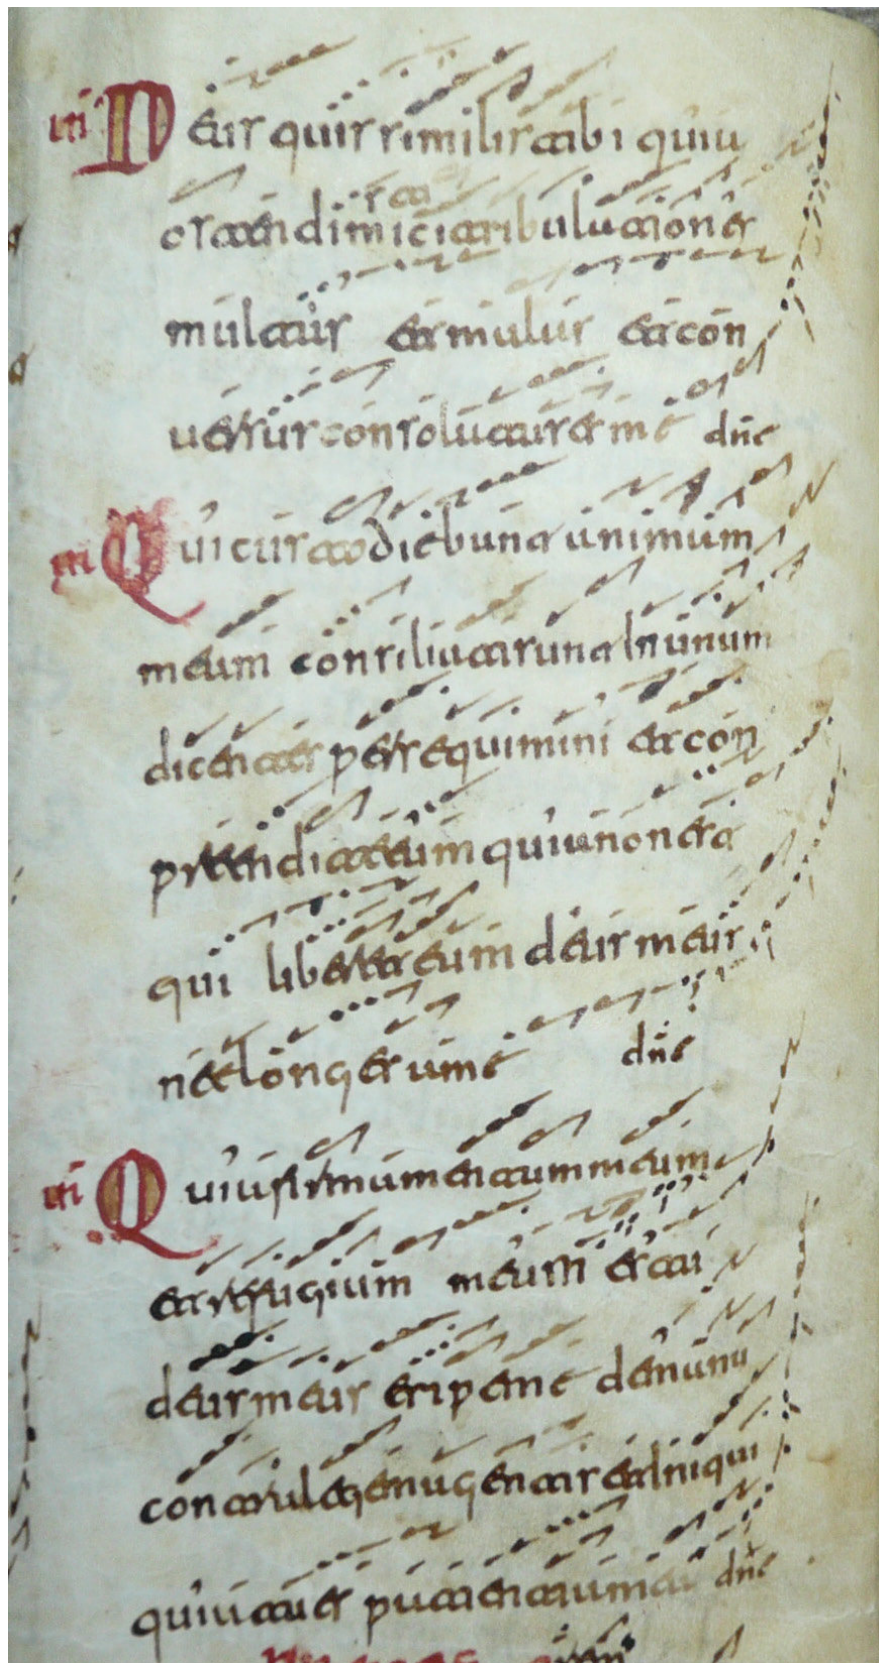 III Deus quis similis tibi quia
ostendisti mici tribulationes
multas et malas et con
uersus consolatus es me dne
III Qui custodiebant animam
meam consiliati sunt in unum
dicentes persequimini et con
prendite eum quia non est
qui liberet eum deus meus
ne elonges a me dne
III Quia firmamentum meum
et refugium meum es tu
deus meus eripe me de manu
contra legem agentis et iniqui
quia tu es patientia mea dne